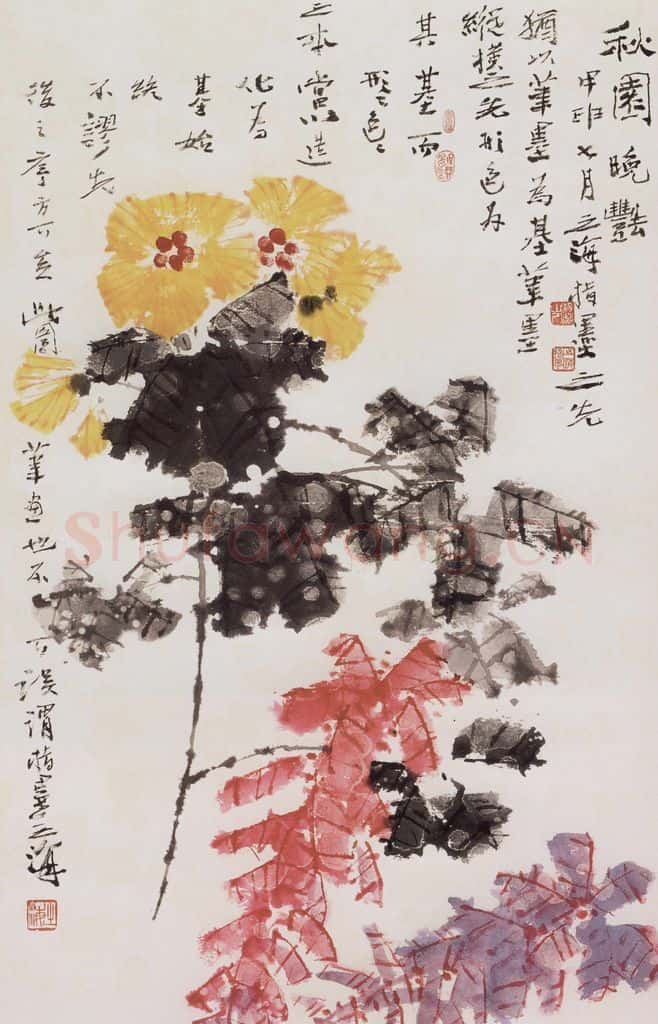 秋園晚豔
甲 七月之海指墨之先
猶以筆墨為基筆墨之
縱橫之先形色為
其基而
形之色之
之本當以造
化為
基始
終
不謬先
後之序方可言此圖
筆畫也不可誤謂指畫之海
Shufawang.CN